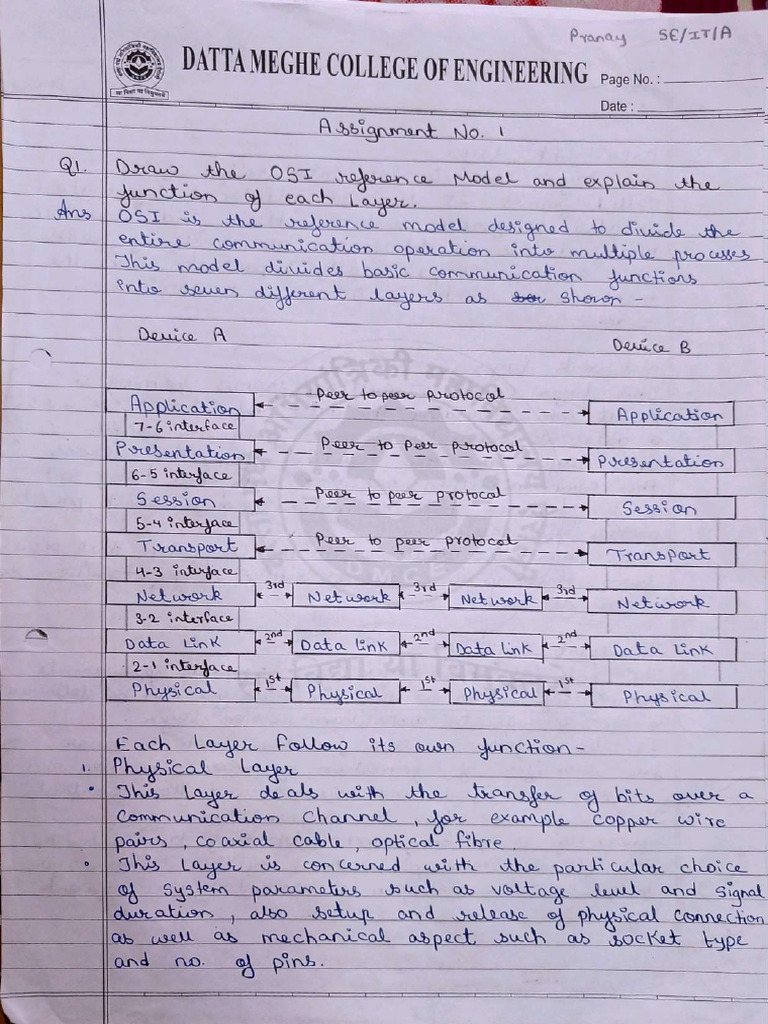 Pranay SE/IT/A
DATTA MEGHE COLLEGE OF ENGINEERING
Page No. :
Date :
Assignment No. 1
Q1. Draw the OSI reference Model and explain the
function of each Layer.
Ans OSI is the reference model designed to divide the
entire communication operation into multiple processes
This model divides basic communication functions
into seven different layers as shown -
Device A Device B
Application Peer to peer protocol Application
7-6 interface
Presentation Peer to Peer protocol Presentation
6-5 interface
Session Peer to peer protocol Session
5-4 interface
Transport Peer to peer protocol Transport
4-3 interface
Network 3rd Network 3rd Network 3rd Network
3-2 interface
Data Link 2nd Data Link 2nd Data Link 2nd Data Link
2-1 interface
Physical 1st Physical 1st Physical 1st Physical
Each Layer follow its own function-
1. Physical Layer
• This Layer deals with the transfer of bits over a
communication channel, for example copper wire
pairs, coaxial cable, optical fibre
• This Layer is concerned with the particular choice
of system parameters such as voltage level and signal
duration, also setup and release of physical connection
as well as mechanical aspect such as socket type
and no. of pins.